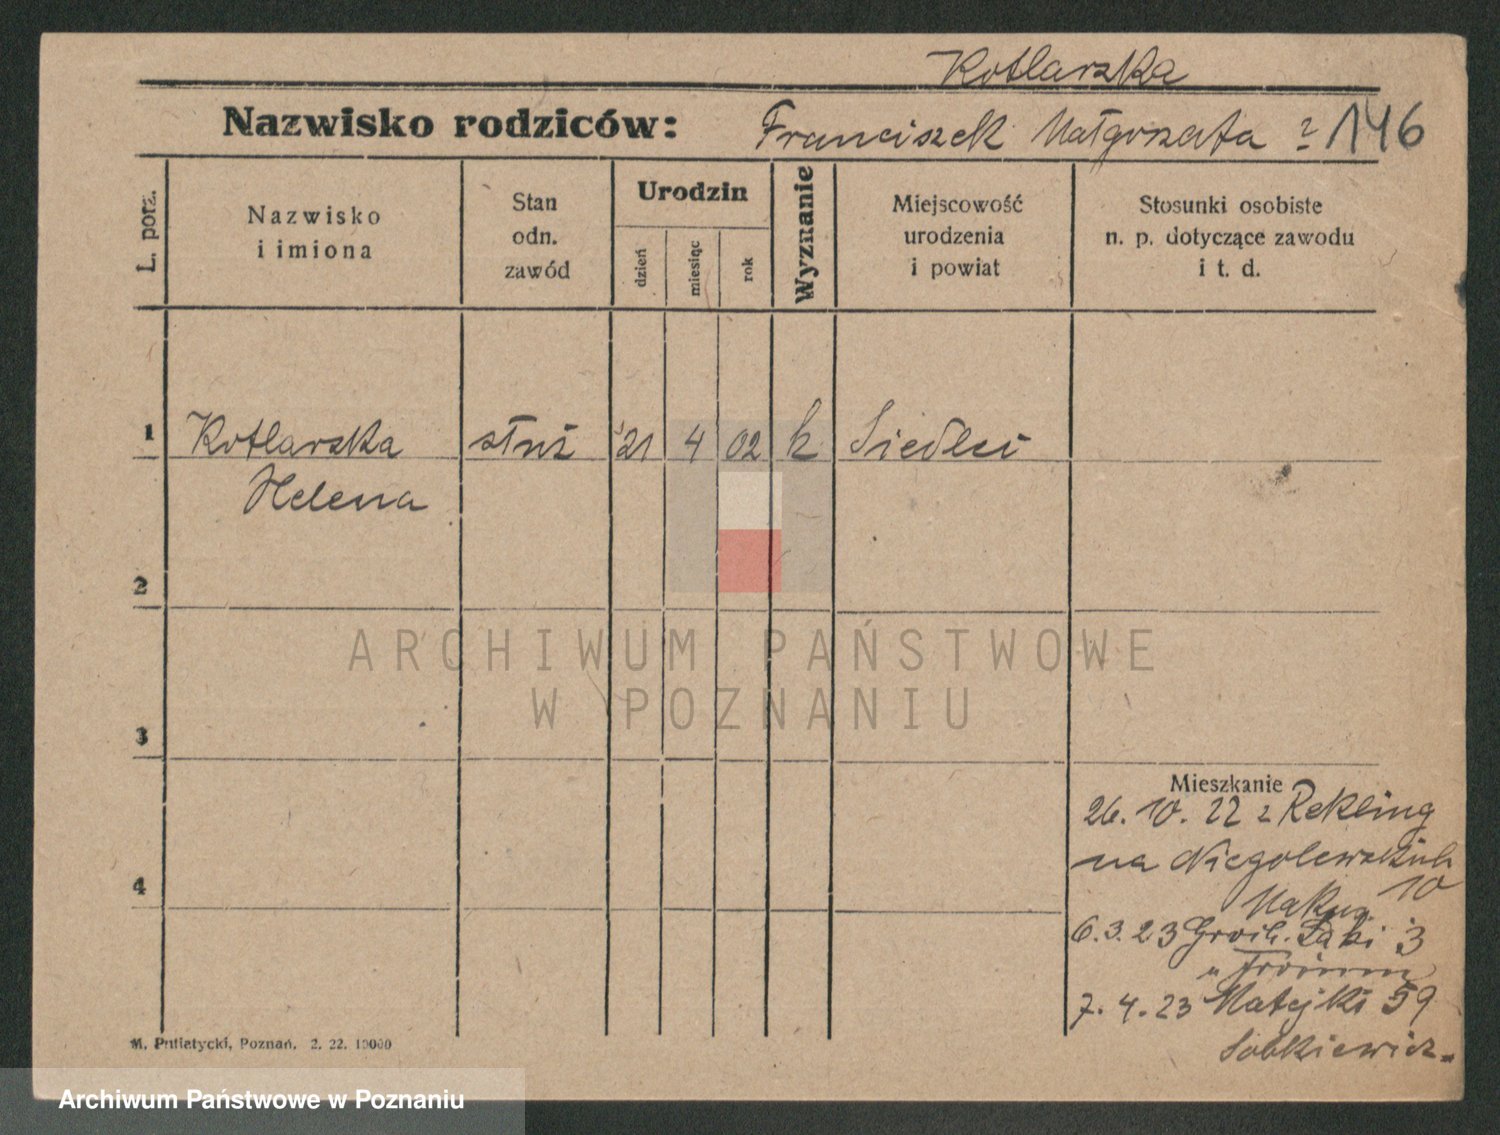 Kotlarska
Nazwisko rodziców: Franciszek Małgorzata 146
L. porz.
Nazwisko i imiona
Stan odn. zawód
Urodzin
dzień
miesiąc
rok
Wyznanie
Miejscowość urodzenia i powiat
Stosunki osobiste n. p. dotyczące zawodu i t. d.
1 Kotlarska służ 21 4 02 k Siedlec
Helena
2
ARCHIWUM PAŃSTWOWE
W POZNANIU
3
Mieszkanie
26. 10. 22 z Rekling
na Niegolewskich
10
4
6. 3. 23 Łąki 3
7. 4. 23 Matejki 59
Sobkiewicz
M. Putiatycki, Poznań. 2. 22. 10000
Archiwum Państwowe w Poznaniu